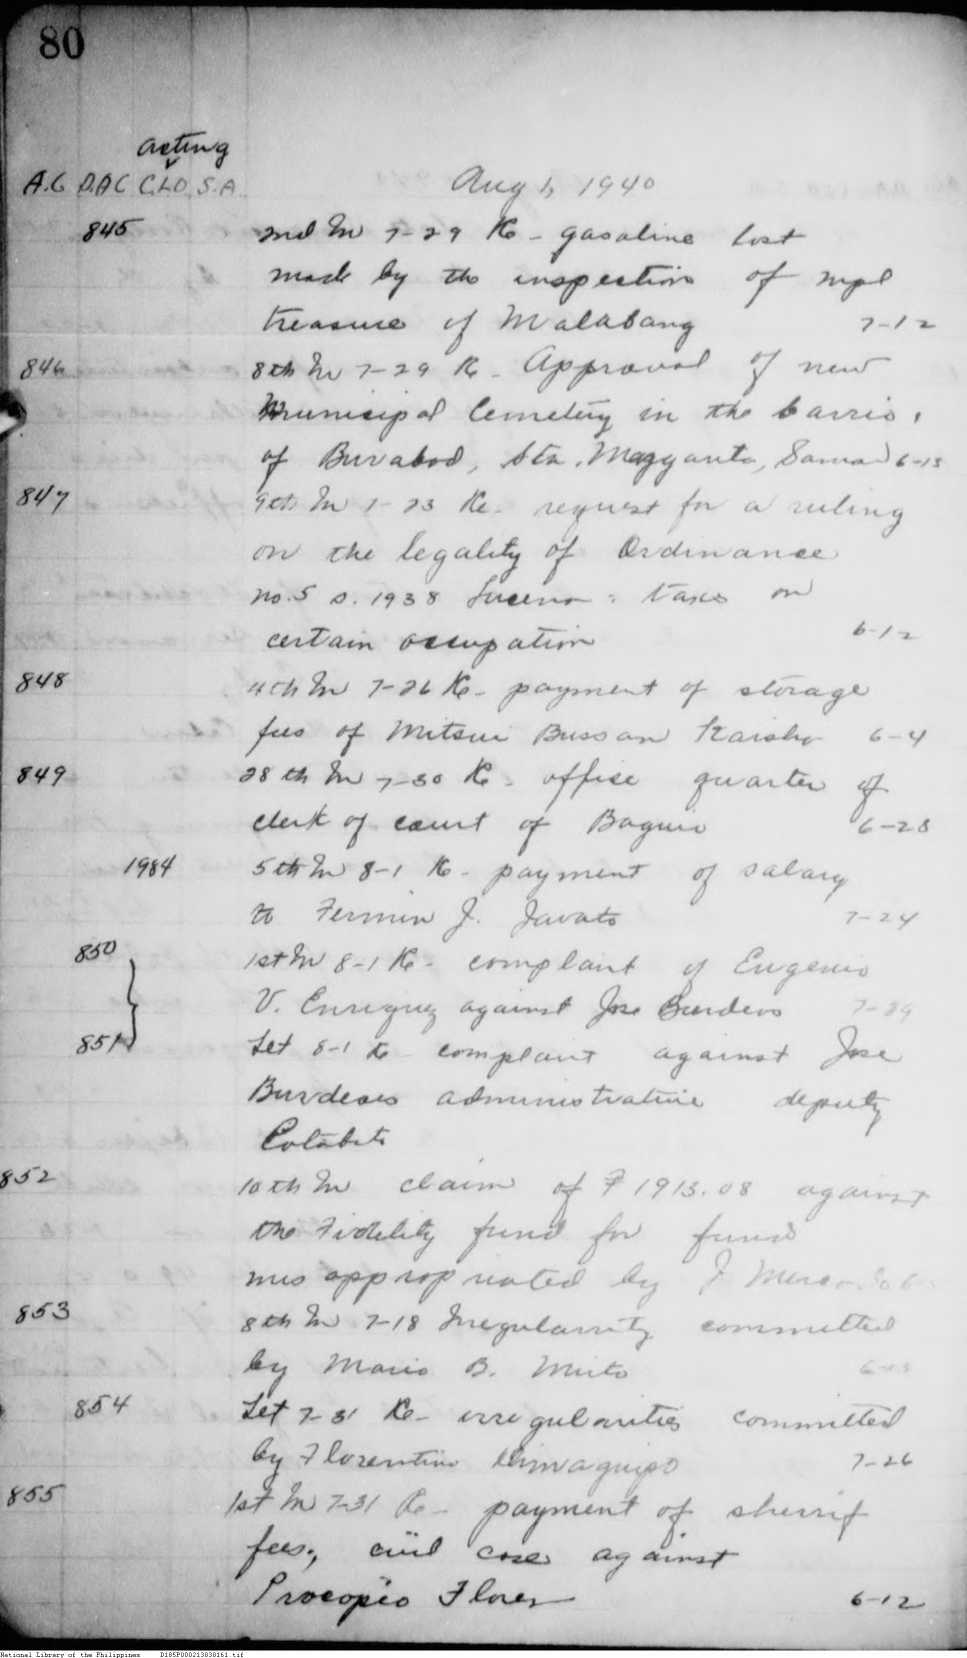 80
acting
A.C D.A.C C.L.O S.A.
Aug 1, 1940
845 2nd In 7-29 Re - gasoline lost
made by the inspection of mpl
treasure of Malabang 7-12
846 8th In 7-29 Re - Approval of new
Municipal Cemetery in the barrio,
of Buvabod, Sta. Margarita, Samar 6-13
847 9th In 7-23 Re - request for a ruling
on the legality of Ordinance
no. 5 s. 1938 Lucena : taxes on
certain occupation 6-12
848 4th In 7-26 Re - payment of storage
fees of Mitsui Bussan Kaisha 6-4
849 28th In 7-30 Re - office quarter of
clerk of court of Baguio 6-28
1984 5th In 8-1 Re - payment of salary
to Fermin J. Javato 7-24
850 1st In 8-1 Re - complaint of Eugenio
V. Enriquez against Jose Burdeos 7-29
851 Let 8-1 Re complaint against Jose
Burdeos administrative deputy
Cotabato
852 10th In claim of ₱ 1913.08 against
the Fidelity fund for funds
misappropriated by J
853 8th In 7-18 Irregularity committed
by Mario B.
854 Let 7-31 Re - irregularities committed
by Florentino 7-26
855 1st In 7-31 Re - payment of sherrif
fees, civil case against
Procopio Flores 6-12
National Library of the Philippines D185P000213838161.tif